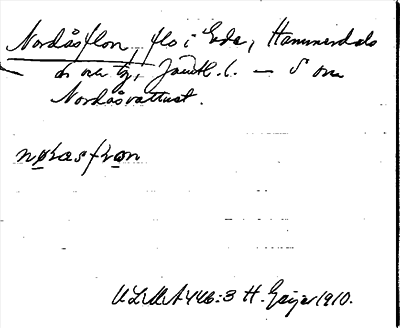 Nordåsflon, flo i Ede, Hammerdals
sn o tg, Jämtl. l. — S om
Nordåsvattnet.
nọrasflọn
ULMA 446:3 H. Geijer 1910.